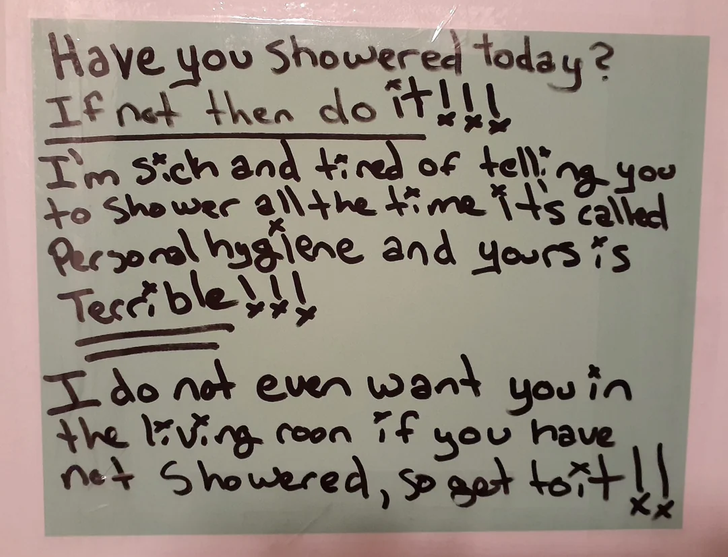 Have you showered today?
If not then do it!!!
I'm sick and tired of telling you
to shower all the time it's called
Personal hygiene and yours is
Terrible!!!
I do not even want you in
the living roon if you have
not showered, so get to it!!